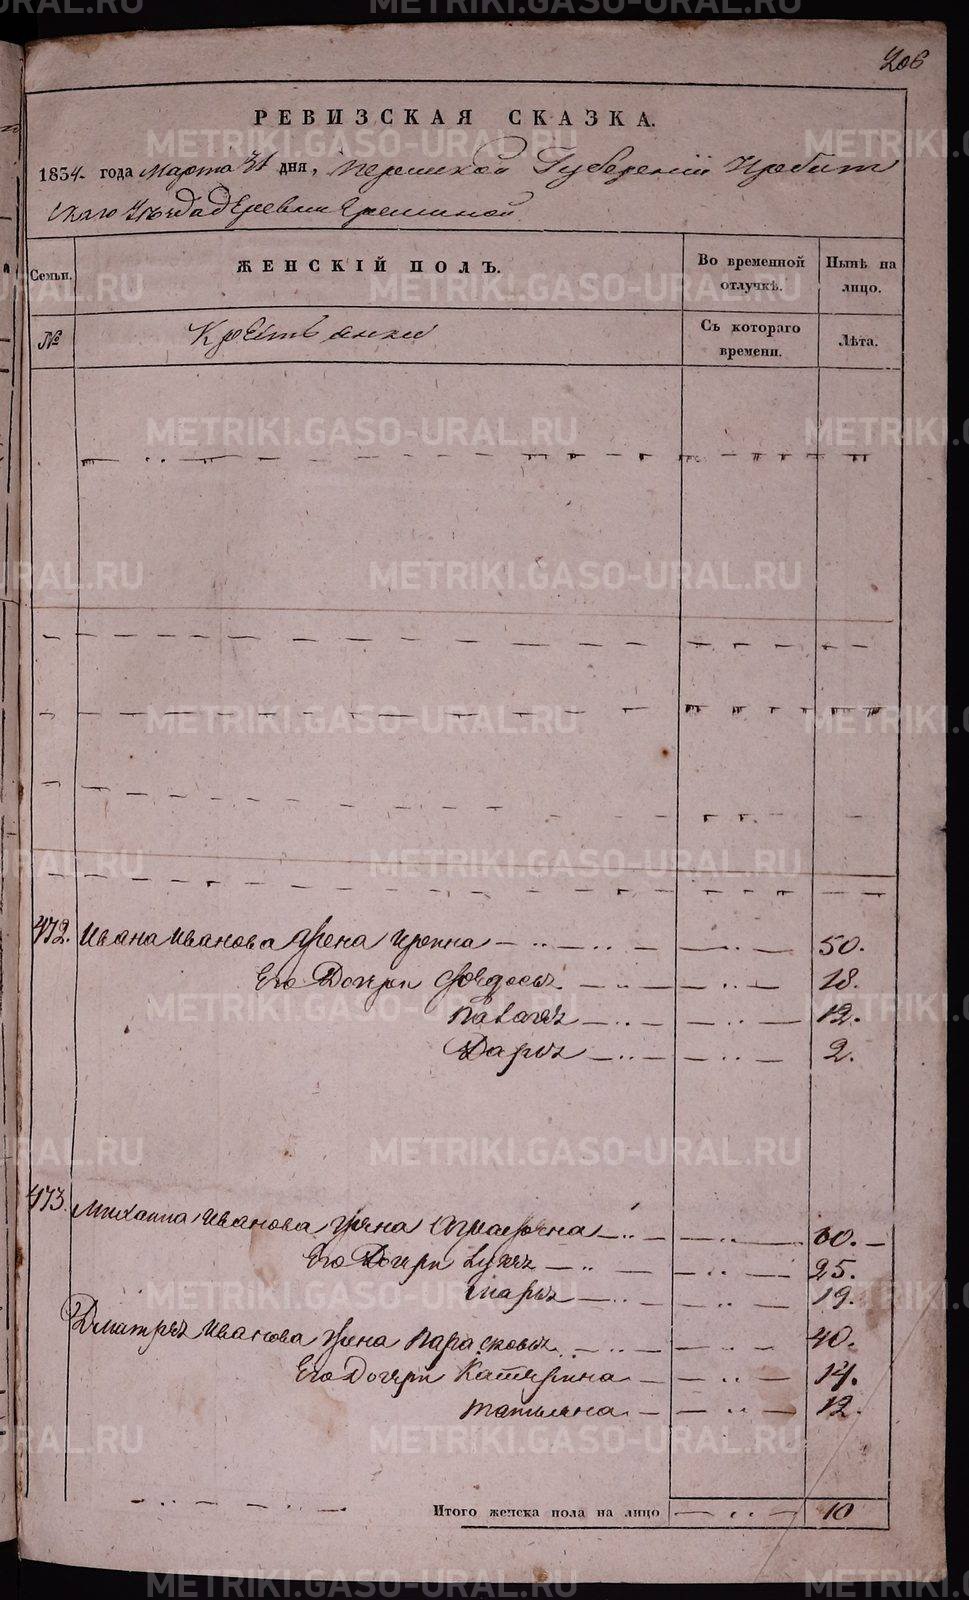 206
РЕВИЗСКАЯ СКАЗКА.
1834. года Марта 31 дня, Пермской Губернии Ирбит
скаго Уезда деревни Ереминой
Семьи. ЖЕНСКІЙ ПОЛЪ. Во временной отлучкѣ. Нынѣ на лицо.
№ Крестьянки Съ котораго времени. Лѣта.
472. Ивана Иванова жена Ирина 50.
Его Дочери Федосья 18.
Павлa 12.
Дарья 2.
473. Михаила Иванова жена 60.
Его Дочери Лукея 25.
Марья 19.
Дмитрея Иванова жена Парасковья 40.
Его Дочери Катерина 14.
Татьяна 12.
Итого женска пола на лицо 10
METRIKI.GASO-URAL.RU